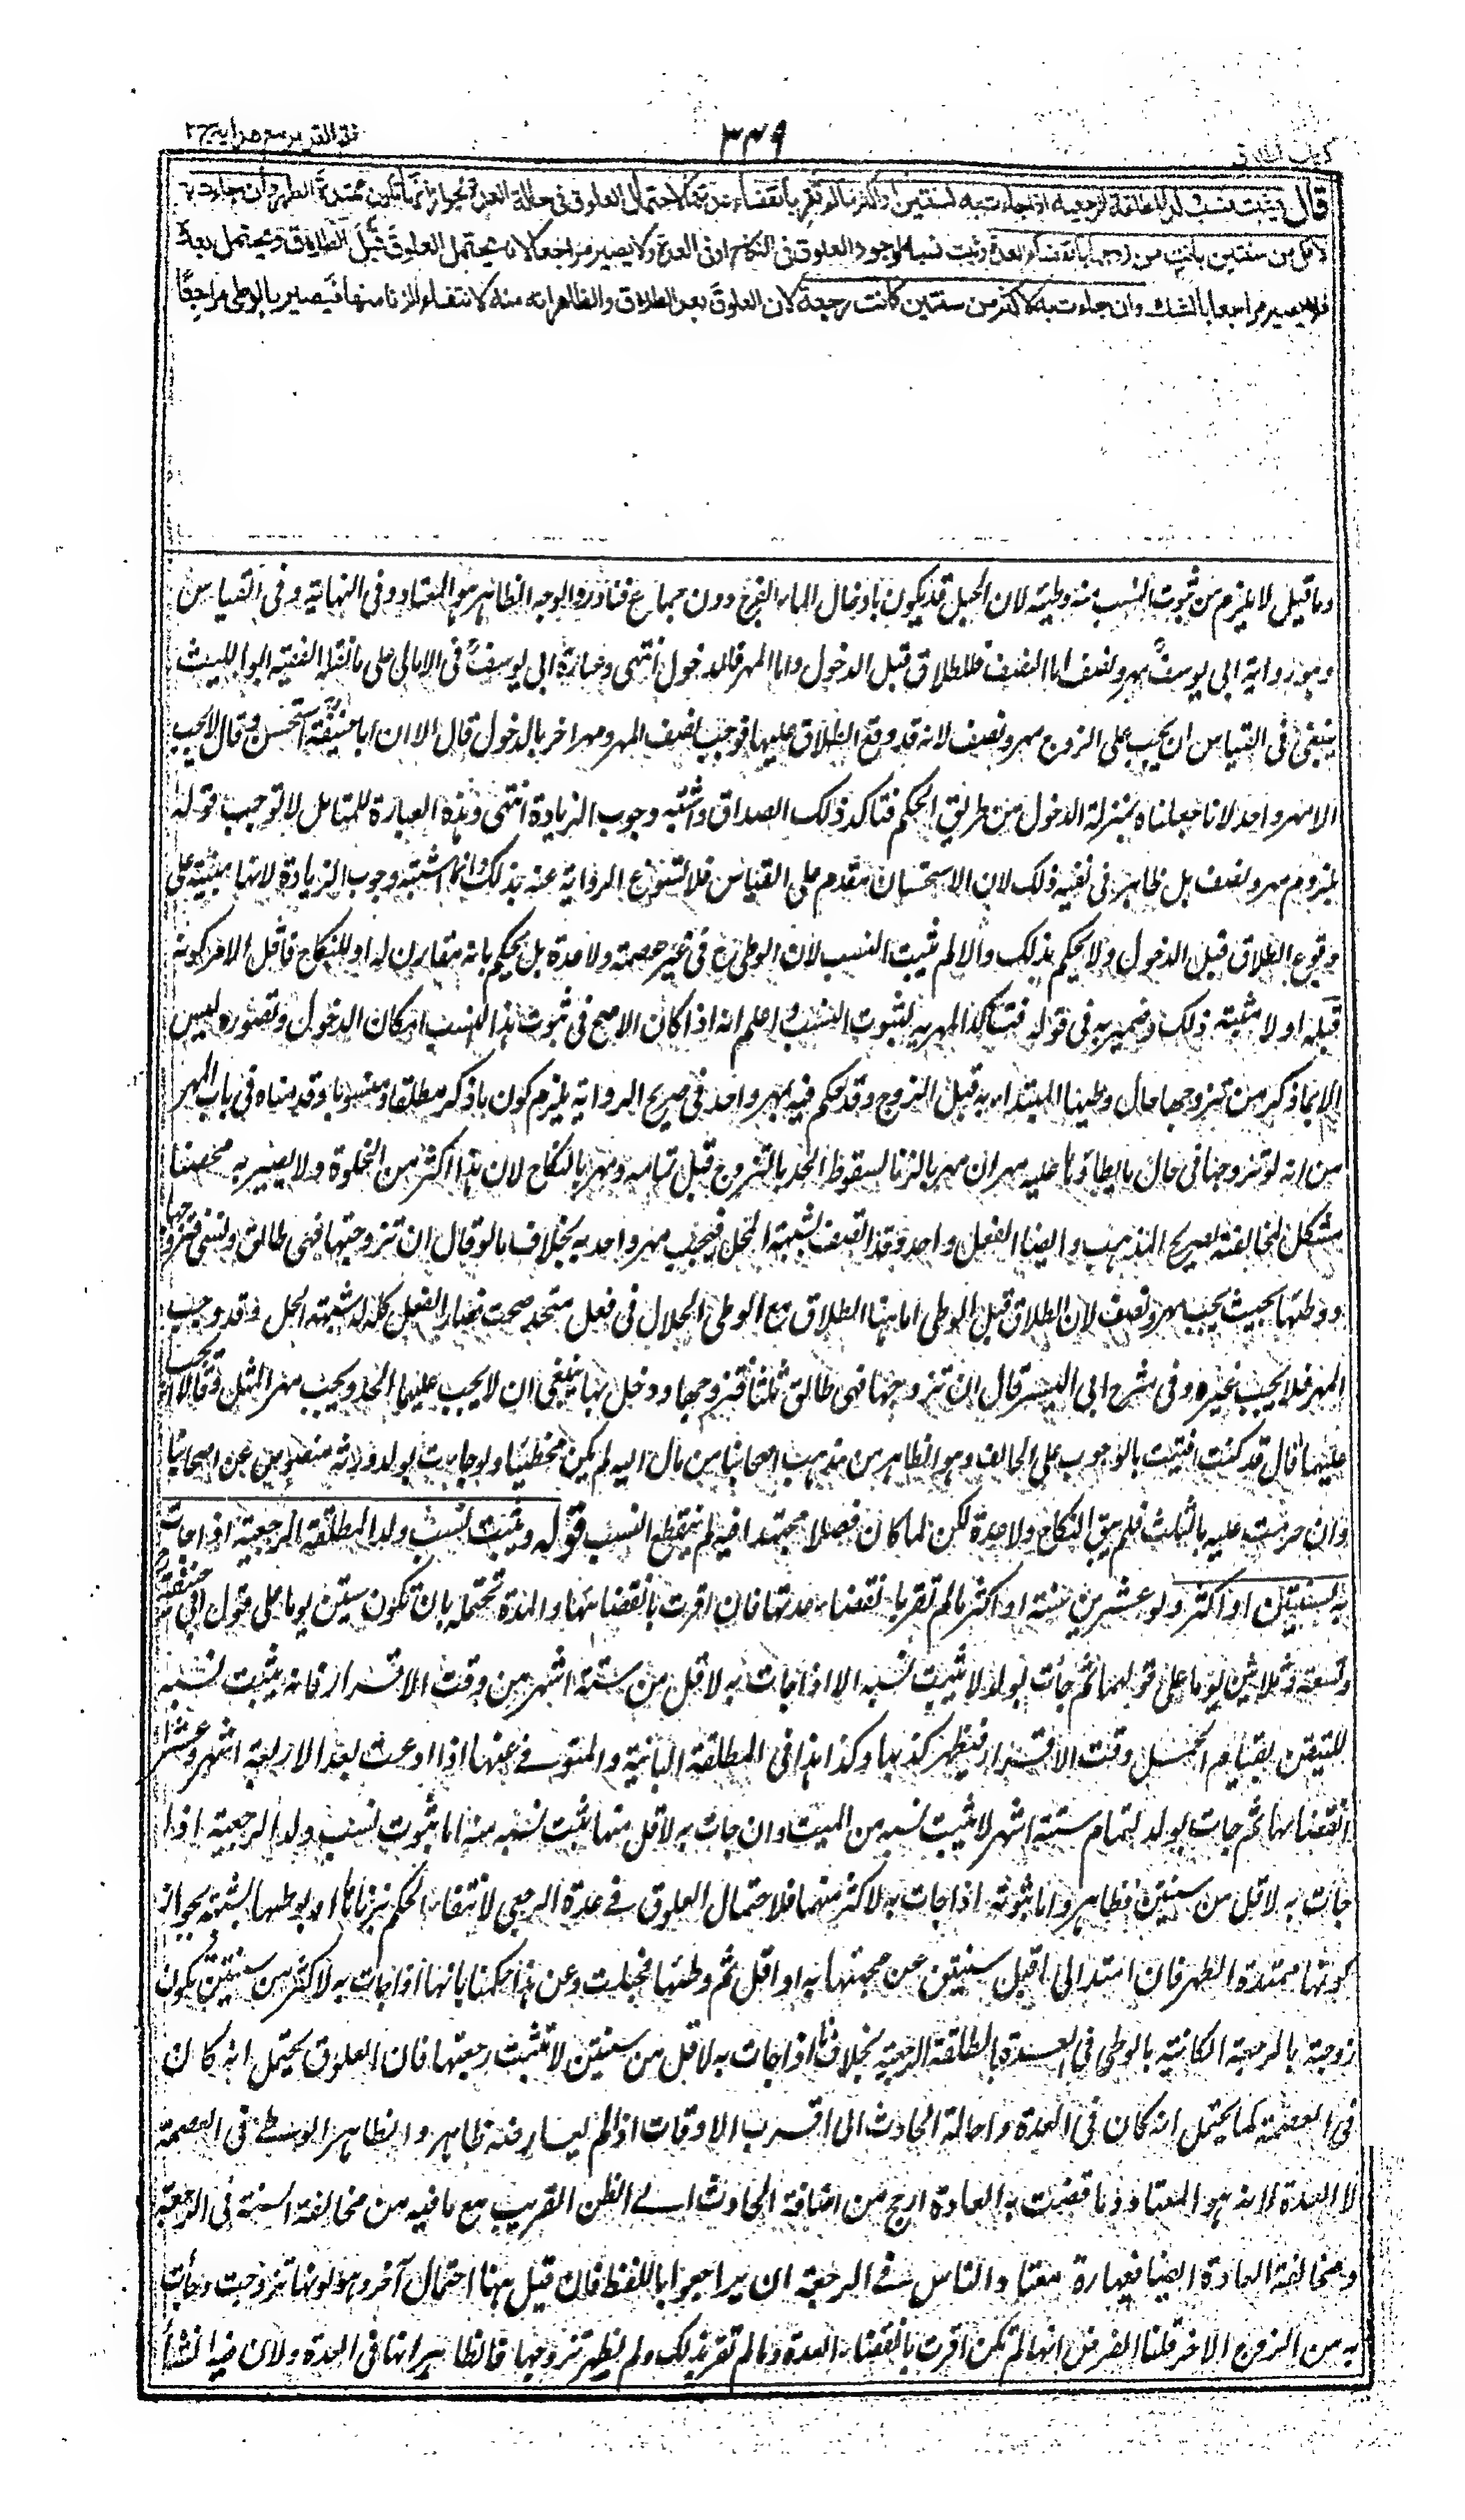 ٣٤٩
قال يثبت نسب ولد المطلقة الرجعية اذا جاءت به لسنتين او اكثر ما لم تقر بانقضاء عدتها لاحتمال العلوق في حالة العدة لجواز انها تكون ممتدة الطهر وان جاءت به
لاقل من سنتين بانت من زوجها بانقضاء العدة وثبت نسبه لوجود العلوق في النكاح او في العدة ولا يصير مراجعا لانه يحتمل العلوق قبل الطلاق ويحتمل بعده
فلا يصير مراجعا بالشك وان جاءت به لاكثر من سنتين كانت رجعة لان العلوق بعد الطلاق والظاهر انه منه لانتفاء الزنا منها فيصير بالوطي مراجعا
وما قيل لا يلزم من ثبوت النسب منه وطيه لان الحبل قد يكون بادخال الماء الفرج دون جماع فنادر والوجه الظاهر هو المعتاد وفى النهاية وفى القياس
وهو رواية ابى يوسف مهر ونصف اما النصف فللطلاق قبل الدخول واما المهر فللدخول انتهى وعبارة ابى يوسف فى الامالى على ما نقله الفقيه ابو الليث
ينبغى فى القياس ان يجب على الزوج مهر ونصف لانه قد وقع الطلاق عليها فوجب نصف المهر ومهر اخر بالدخول قال الا ان ابا حنيفة استحسن وقال لا يجب
الا مهر واحد لانا جعلناه بمنزلة الدخول من طريق الحكم فتاكد ذلك الصداق واشتبه وجوب الزيادة انتهى وهذه العبارة للمتامل لا توجب قوله
بلزوم مهر ونصف بل ظاهر فى نفيه ذلك لان الاستحسان مقدم على القياس فلا تتنوع الرواية عنه بذلك وانما اشتبه وجوب الزيادة لانها مبنية على
وقوع الطلاق قبل الدخول ولا يحكم بذلك والا لم يثبت النسب لان الوطى ح فى غير عصمة ولا عدة بل يحكم بانه مقارن له او للنكاح فاقل الامر كونه
قبله او لا مثبته ذلك وضمير به فى قوله فتاكد المهر به لثبوت النسب واعلم انه اذا كان الاصح فى ثبوت هذا النسب امكان الدخول وتصوره ليس
الا بما ذكر من تزوجها حال وطيها المبتدا به قبل التزوج وقد حكم فيه بمهر واحد فى صريح الرواية يلزم كون ما ذكر مطلقا ومنسوبا وقدمناه فى باب المهر
من انه لو تزوجها فى حال ما يطاؤها عليه مهران مهر بالزنا لسقوط الحد بالتزوج قبل تمامه ومهر بالنكاح لان هذا اكثر من الخلوة ولا يصير به محصنا
مشكل لمخالفته لصريح المذهب وايضا الفعل واحد وقد اتصف بشبهة الحل فيجب مهر واحد به بخلاف ما لو قال ان تزوجتها فهى طالق ونسى فتزوجها
ووطئها بحيث يجب مهر ونصف لان الطلاق قبل الوطى اما ههنا الطلاق مع الوطى الحلال فى فعل متحد فصار الفعل كله له شبهة الحل وقد وجب
المهر فلا يجب غيره وفى شرح ابى اليسر قال ان تزوجها فهى طالق ثلثا فتزوجها ودخل بها ينبغى ان لا يجب عليهما الحد ويجب مهر المثل وقالا يجب
عليهما قال قد كنت افتيت بالوجوب على الحالف وهو الظاهر من مذهب اصحابنا من مال اليه لم يكن مخطئا ولو جاءت بولد ورثه منصوص عن اصحابنا
وان حرمت عليه بالثلث فلم يبق النكاح ولا عدة لكن لما كان فصلا مجتهدا فيه لم ينقطع النسب قوله ويثبت نسب ولد المطلقة الرجعية اذا جاءت
به لسنتين او اكثر ولو عشرين سنة او اكثر ما لم تقر بانقضاء عدتها فان اقرت بانقضائها والمدة تحتمله بان تكون ستين يوما على قول ابى حنيفة
وتسعة وثلاثين يوما على قولهما ثم جاءت بولد لا يثبت نسبه الا اذا جات به لاقل من ستة اشهر من وقت الاقرار فانه يثبت نسبه
للتيقن بقيام الحمل وقت الاقرار فيظهر كذبها وكذا هذا فى المطلقة البائنة والمتوفى عنها اذا ادعت بعد الاربعة اشهر وعشرا
انقضائها ثم جات بولد لتمام ستة اشهر لا يثبت نسبه من الميت وان جات به لاقل منها يثبت نسبه منه اما ثبوت نسب ولد الرجعية اذا
جات به لاقل من سنتين فظاهر واما ثبوته اذا جات به لاكثر منهما فلاحتمال العلوق فى عدة الرجعى لانتفاء الحكم بزناها او بوطيها بشبهة بجواز
كونها ممتدة الطهر فان امتد الى اقبل سنتين عن مجيئها به او اقل ثم وطئها فحبلت وعن هذا حكمنا بانها اذا جات به لاكثر من سنتين تكون
زوجة بالرجعة الكائنة بالوطى فى العدة بالطلقة الرجعية بخلاف ما اذا جات به لاقل من سنتين لا تثبت رجعتها فان العلوق يحتمل انه كان
فى العصمة كما يحتمل انه كان فى العدة واحالة الحادث الى اقرب الاوقات اذا لم يعارضه ظاهر والظاهر الوطى فى العصمة
لا العدة لانه هو المعتاد وما قضت به العادة ارجح من اضافة الحادث الى الظن القريب مع ما فيه من مخالفة السنة فى الرجعة
ومخالفة العادة ايضا فعبارة معتاد الناس فى الرجعة ان يراجعوا باللفظ فان قيل ههنا احتمال آخر وهو كونها تزوجت وجأت
به من الزوج الاخر قلنا الفرض انها لم تكن اقرت بانقضاء العدة وما لم تقر بذلك ولم يظهر تزوجها فالظاهر انها فى العدة ولان فيه انشأ